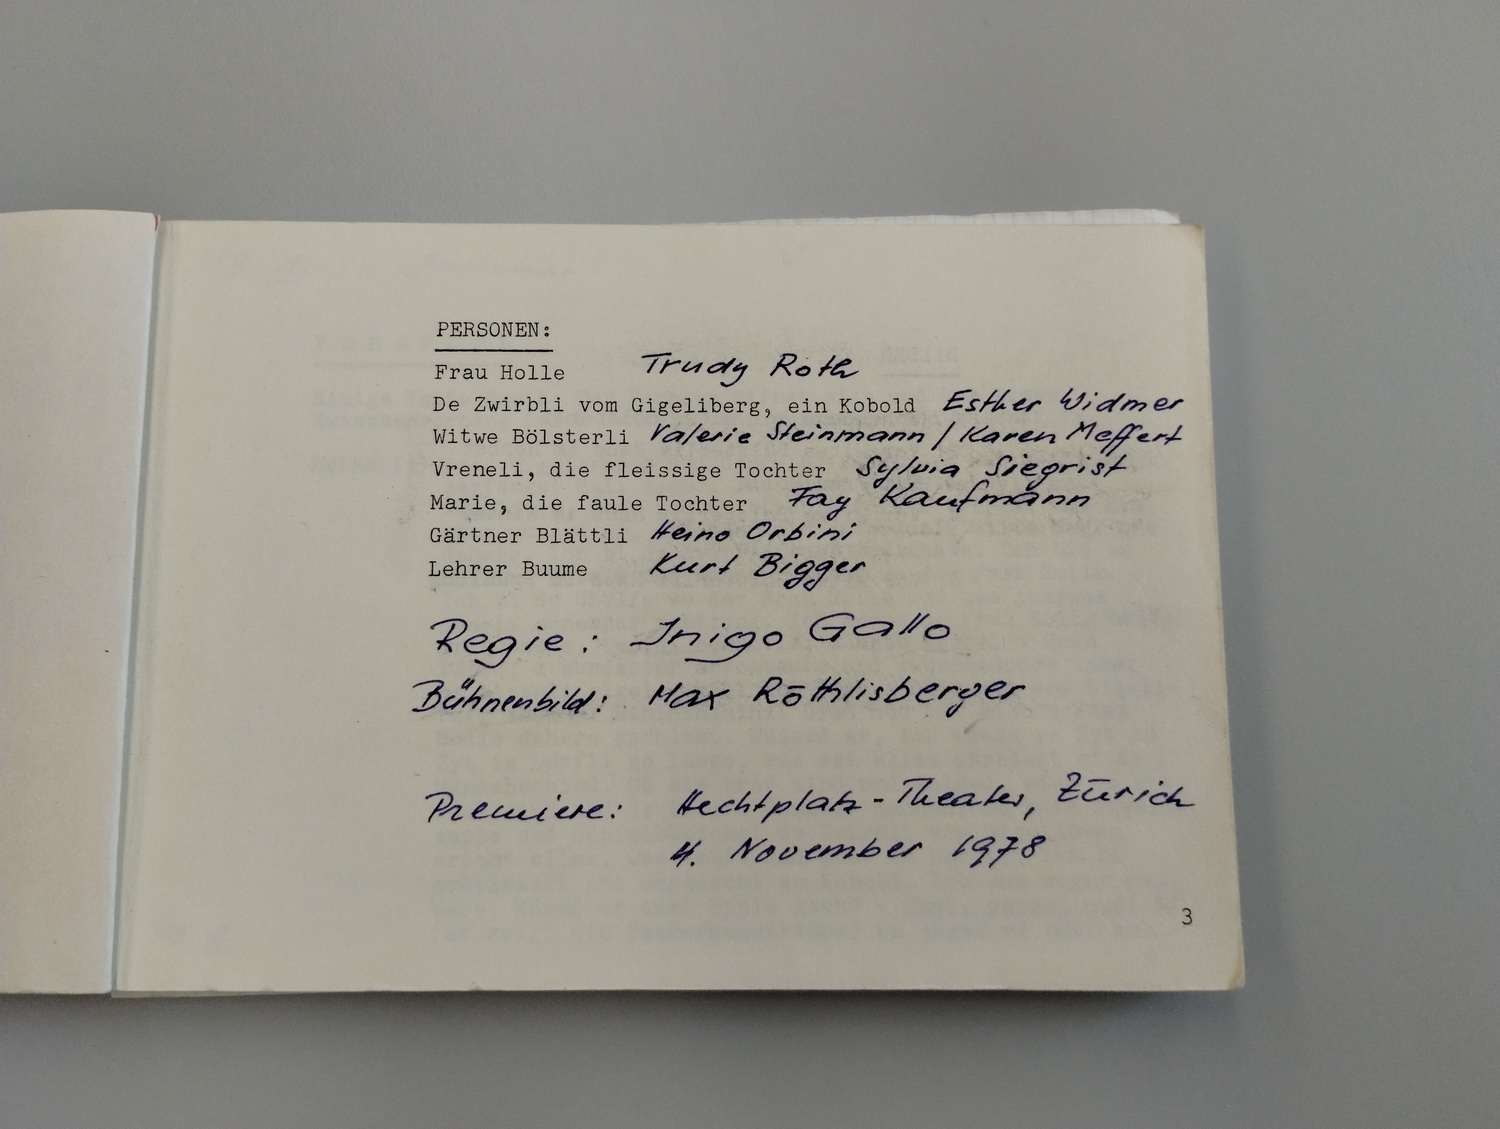 PERSONEN:
Frau Holle Trudy Roth
De Zwirbli vom Gigeliberg, ein Kobold Esther Widmer
Witwe Bölsterli Valerie Steinmann / Karen Meffert
Vreneli, die fleissige Tochter Sylvia Siegrist
Marie, die faule Tochter Fay Kaufmann
Gärtner Blättli Heino Orbini
Lehrer Buume Kurt Bigger
Regie: Inigo Gallo
Bühnenbild: Max Röthlisberger
Premiere: Hechtplatz-Theater, Zürich
4. November 1978
3